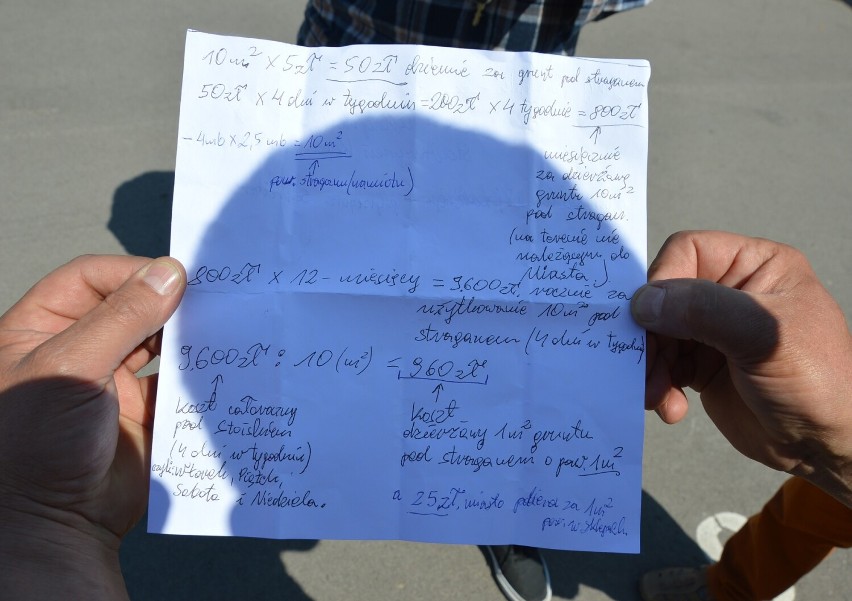 10m² × 5zł = 50zł dziennie za grunt pod straganem
50zł × 4 dni w tygodniu = 200zł × 4 tygodnie = 800zł
- 4mb × 2,5mb = 10m²
pow. straganu (namiotu)
miesięcznie
za dzierżawę
gruntu 10m²
pod stragan.
(na terenie nie
należącym do
Miasta)
800zł × 12 - miesięcy = 9,600zł. rocznie za
użytkowanie 10m² pod
straganem (4 dni w tygodniu)
9,600zł : 10 (m²) = 960zł
Koszt całoroczny
pod stoiskiem
(4 dni w tygodniu)
czyli: wtorek, Piątek,
Sobota i Niedziela.
Koszt
dzierżawy 1m² gruntu
pod straganem o pow. 1m²
a 25zł. miasto pobiera za 1m²
pow. w sklepach